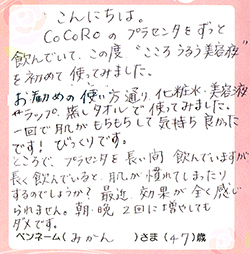 こんにちは。
CoCoRoのプラセンタをずっと
飲んでいて、この度“こころうるう美容液”
を初めて使ってみました。
お勧めの使い方通り、化粧水・美容液
やラップ、蒸しタオルで使ってみました。
一回で肌がもちもちして気持ち良かった
です！びっくりです。
ところで、プラセンタを長い間飲んでいますが
長く飲んでいると、肌が慣れてしまったり
するのでしょうか？最近、効果が全く感じ
られません。朝・晩2回に増やしても
ダメです。
ペンネーム(みかん)さま(47)歳